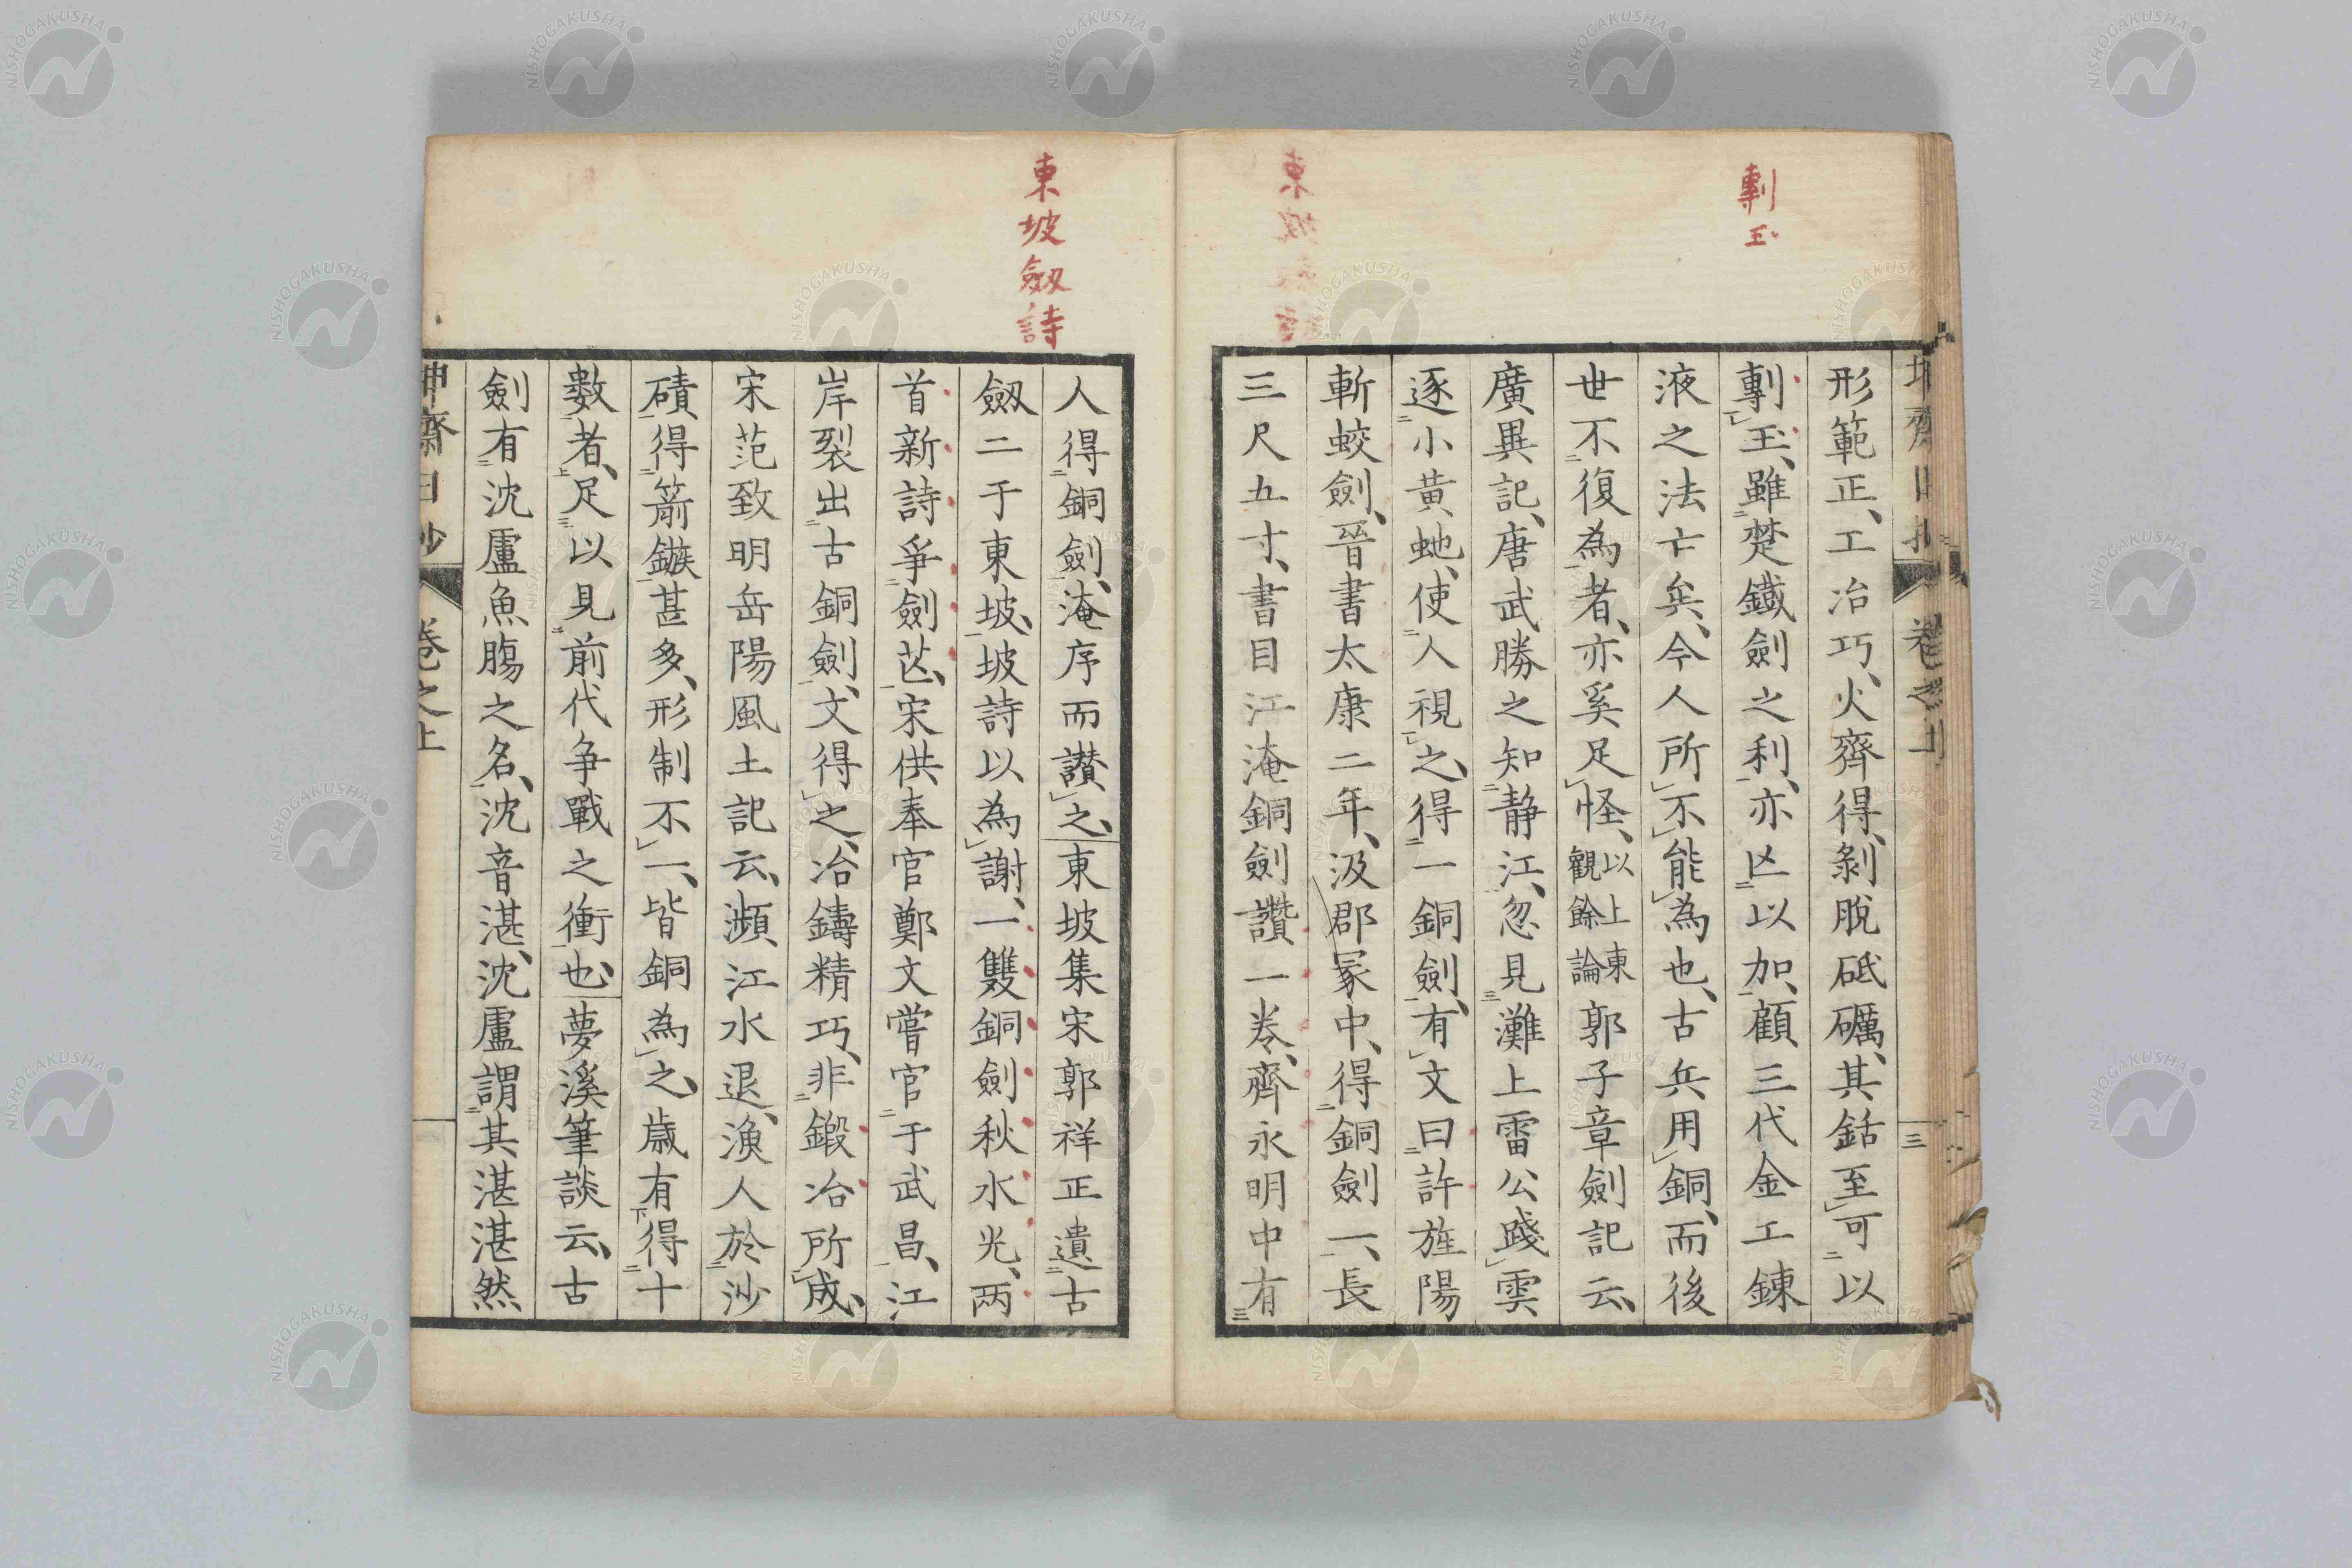 剸玉
形範正、工冶巧、火齊得、剝脫砥礪、其銛至可以
剸玉、雖楚鐵劍之利、亦亡以加、顧三代金工鍊
液之法亡矣、今人所不能為也、古兵用銅、而後
世不復為者、亦奚足怪、以上東觀餘論郭子章劍記云、
廣異記、唐武勝之知靜江、忽見灘上雷公踐雲
逐小黃虵、使人視之、得一銅劍、有文曰許旌陽
斬蛟劍、晉書太康二年、汲郡冢中、得銅劍一、長
三尺五寸、書目江淹銅劍讚一卷、齊永明中有
東坡劔詩
人得銅劍、淹序而讃之、東坡集宋郭祥正遺古
劔二于東坡、坡詩以為謝、一雙銅劍秋水光、兩
首新詩爭劍芒、宋供奉官鄭文嘗官于武昌、江
岸裂出古銅劍、文得之、冶鑄精巧、非鍛冶所成、
宋范致明岳陽風土記云、瀕江水退、漁人於沙
磧得箭鏃甚多、形制不一、皆銅為之、歲有得十
數者、足以見前代爭戰之衝也、夢溪筆談云、古
劍有沈盧魚腸之名、沈音湛、沈盧謂其湛湛然
卷之上
三
NISHOGAKUSHA